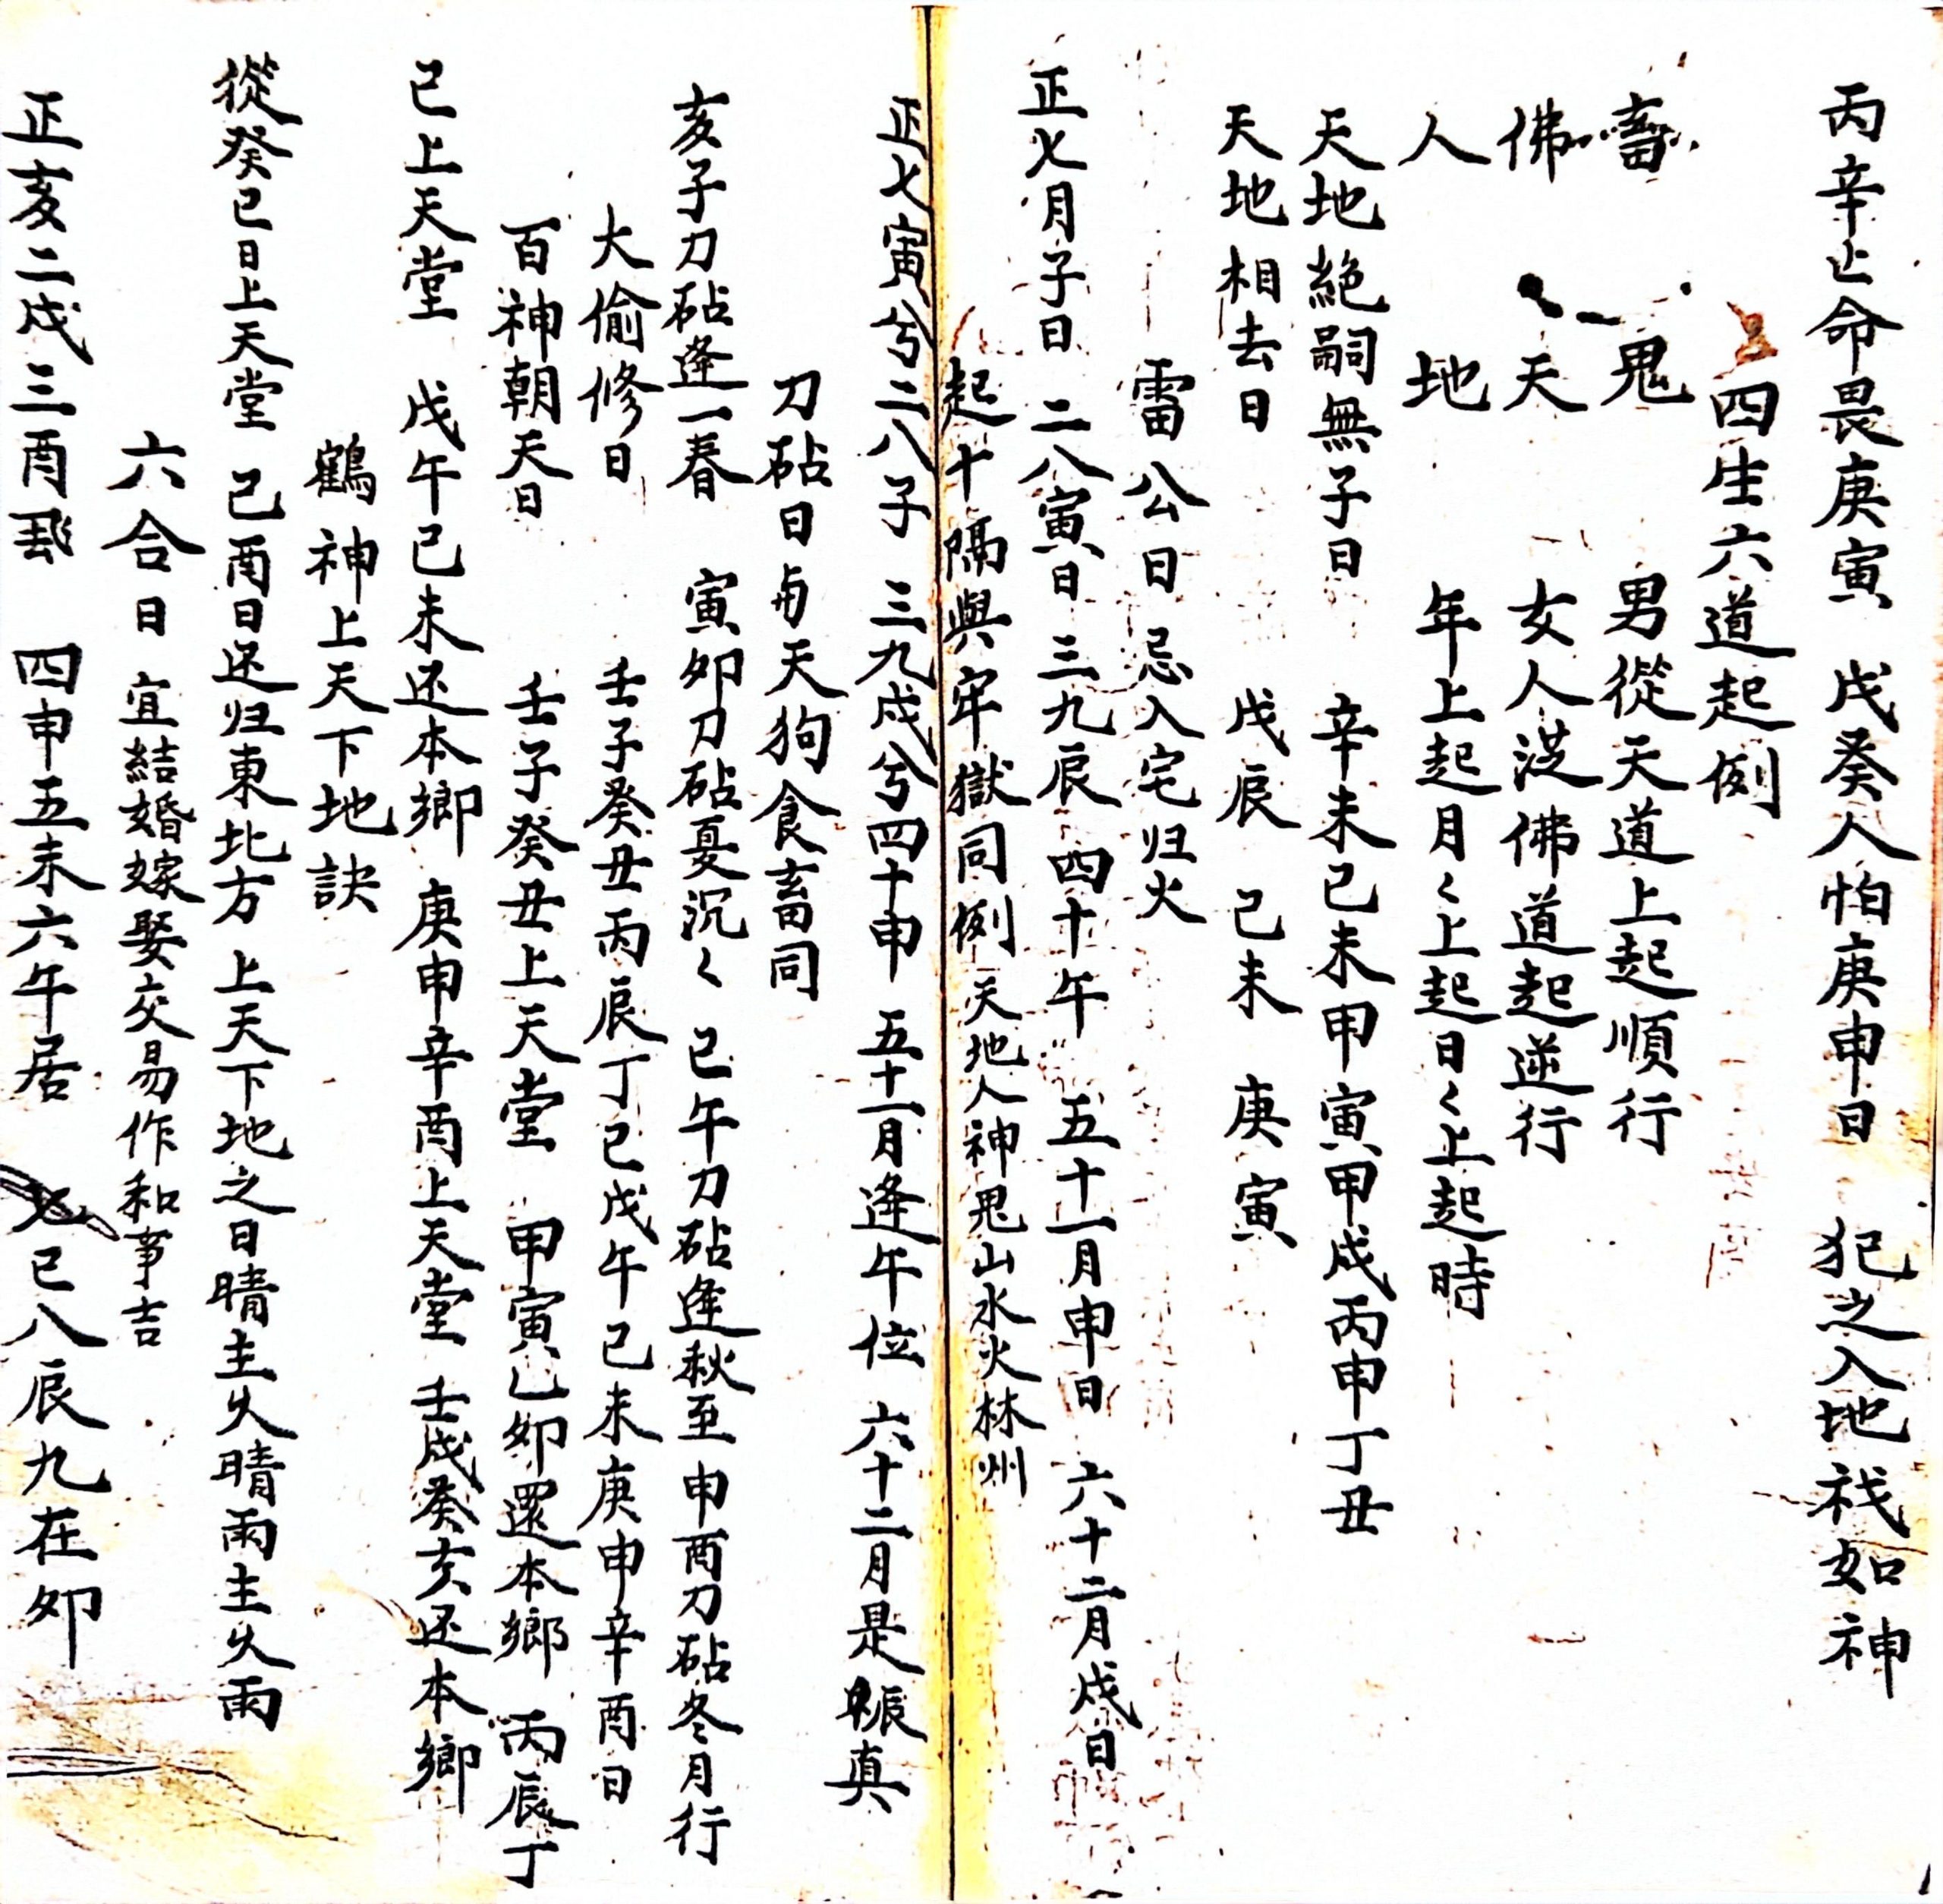 丙辛亡命畏庚寅 戊癸人怕庚申日 犯之入地祿如神
四生六道起例
畜 鬼 男從天道上起順行
佛 天 女人從佛道起逆行
人 地 年上起月〻上起日〻上起時
天地絕嗣無子日 辛未己未甲寅甲戌丙申丁丑
天地相去日 戊辰 己未 庚寅
雷公日 忌入宅归火
正七月子日 二八寅日 三九辰 四十午 五十一月申日 六十二月戌日
起十隔與牢獄同例 天地人神鬼山水火林州
正七寅兮二八子 三九戌兮四十申 五十一月逢午位 六十二月是賑真
刀砧日与天狗食畜同
亥子刀砧逢一春 寅卯刀砧夏沉〻 巳午刀砧逢秋至 申酉刀砧冬月行
大偷修日 壬子癸丑丙辰丁巳戊午己未庚申辛酉日
百神朝天日 壬子癸丑上天堂 甲寅乙卯還本鄉 丙辰丁
巳上天堂 戊午己未还本鄉 庚申辛酉上天堂 壬戌癸亥还本鄉
鶴神上天下地訣
從癸巳日上天堂 己酉日还归東北方 上天下地之日晴主久晴雨主久雨
六合日 宜結婚嫁娶交易作和事吉
正亥二戌三酉 四申五未六午居 七巳八辰九在卯